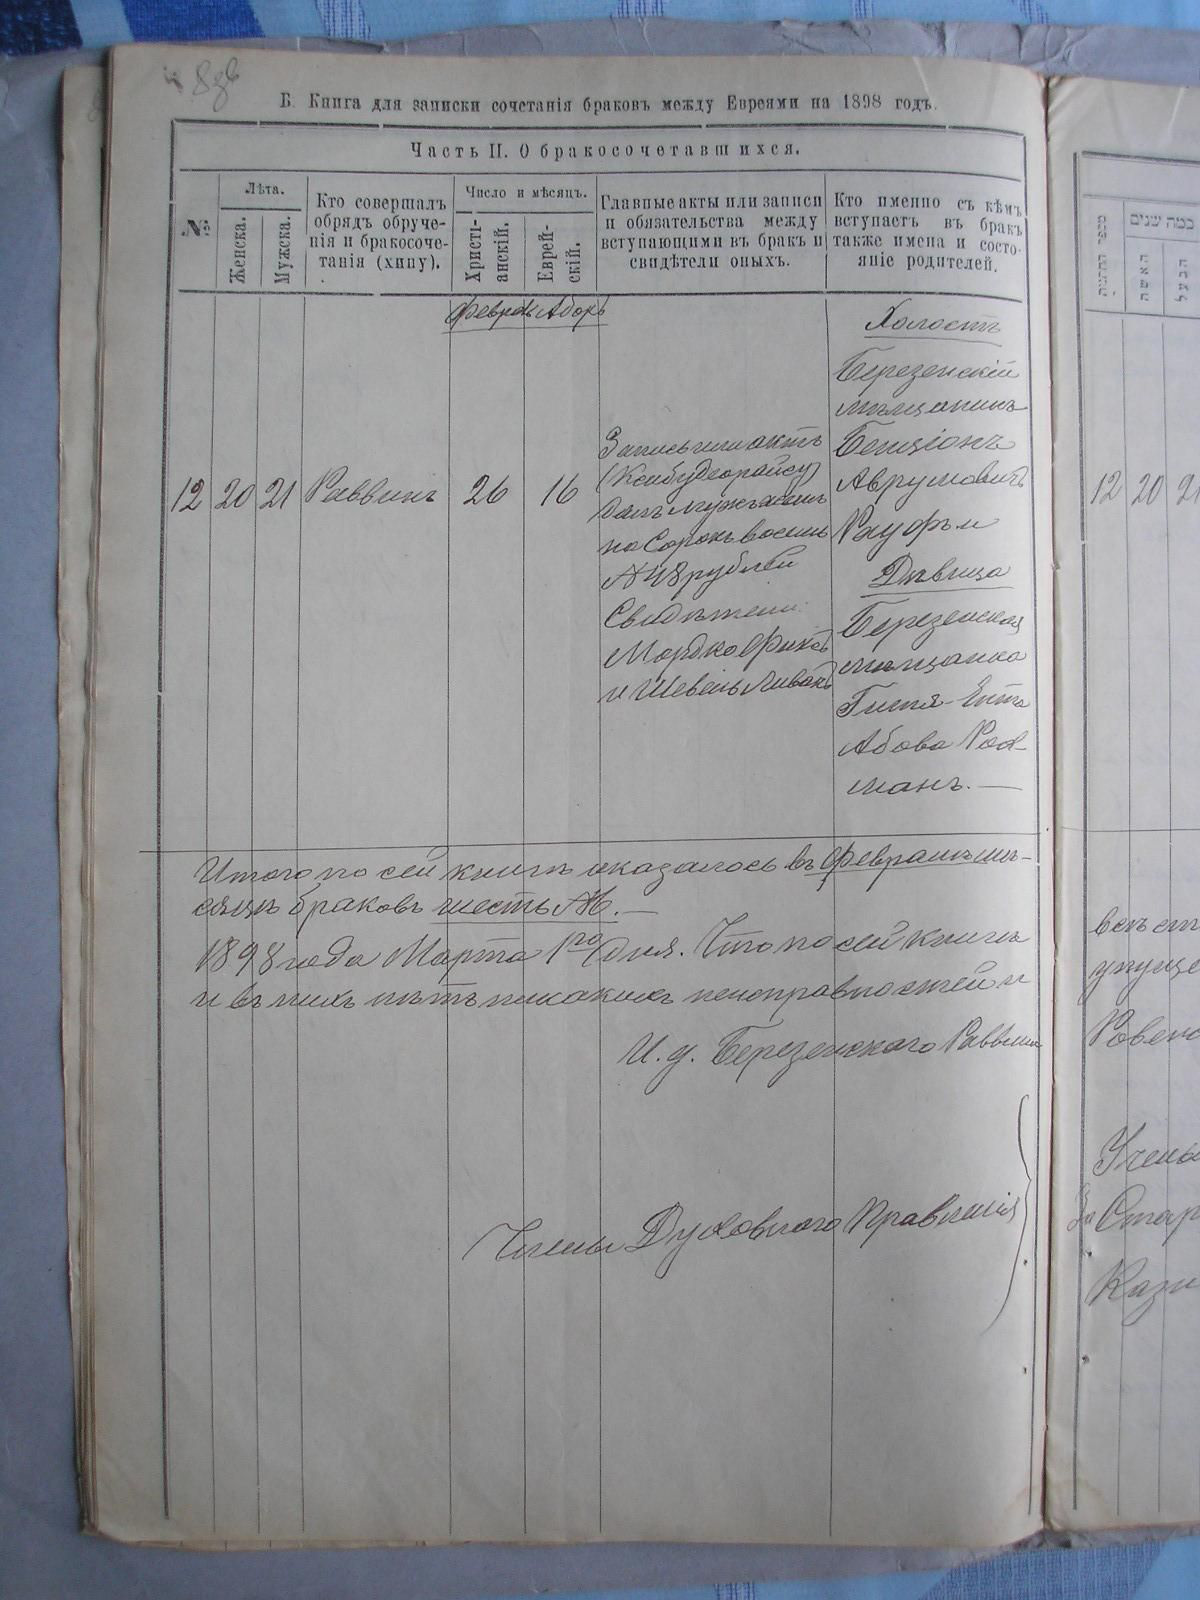 Б. Книга для записки сочетанія браковъ между Евреями на 1898 годъ.
Часть II. О бракосочетавшихся.
№
Лѣта.
Женска.
Мужска.
Кто совершалъ
обрядъ обруче-
нія и бракосоче-
танія (хипу).
Число и мѣсяцъ.
Христі-
анскій.
Еврей-
скій.
Главные акты или записи
и обязательства между
вступающими въ бракъ и
свидѣтели оныхъ.
Кто именно съ кѣмъ
вступаетъ въ бракъ
также имена и состо-
яніе родителей.
12
20
21
Раввинъ
26
16
Запись или актъ
далъ мужъ женѣ
на Сорокъ восемь
№ 48 рублей
Свидѣтели:
Мордко
и Шевель
Холостъ
Березенскій
мѣщанинъ
Бенціонъ
Аврумовичъ
Дѣвица
Березенская
мѣщанка
Гитля-Ента
Абова
манъ.—
Итого по сей книгѣ оказалось въ Февралѣ мѣ-
сяцѣ браковъ шесть №6.—
1898 года Марта 1го дня. Что по сей книгѣ
и въ нихъ нѣтъ никакихъ неисправностей и
И. д. Березенскаго Раввина
Члены Духовнаго Правленія
מספר החתונות
כמה שנים
האשה
הבעל
12
20